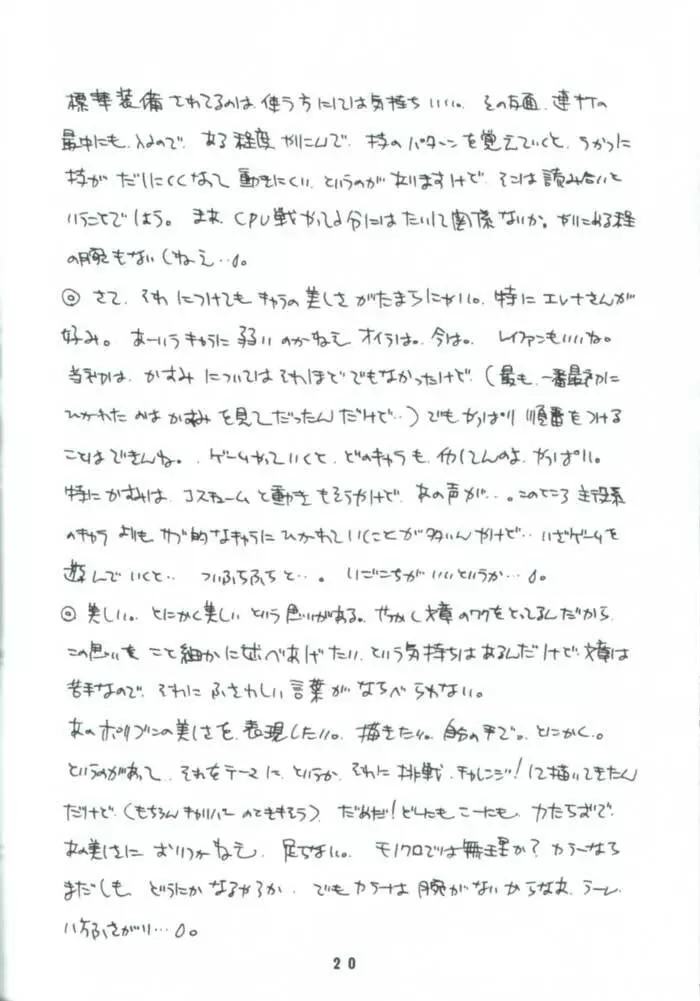 標準装備されてるのは、使う方にしては気持ちいい。その反面、連打の
最中にも入るので、ある程度やりこんで、技のパターンを覚えていくと、うかつに
技がだしにくくなって動きにくい、というのがありますけど、そこは読み合いと
いうことでしょう。まあ、CPU戦やってる分にはたいして関係ないか。やりこめる程
の腕もないしねえ…。
◎ さて、それにつけてもキャラの美しさがたまらにゃい。特にエレナさんが
好み。あーいうキャラに弱いのかねえオイラは。今は。レイファンもいいね。
当初は、かすみについてはそれほどでもなかったけど、(最も、一番最初に
ひかれたのはかすみを見てだったんだけど‥)でもやっぱり順番をつける
ことはできんね。ゲームやっていくと、どのキャラも、れてんのよ、やっぱり。
特にかすみは、コスチュームと動きもそうやけど、あの声が‥。このところ主役系
のキャラよりも、サブ的なキャラにひかれていくことが多いんやけど‥いざゲームを
遊んでいくと‥ついふらふらと‥。いごこちがいいというか…。
◎ 美しい。とにかく美しいという思いがある。せっかく文章のワクをとってるんだから、
この思いをこと細かに述べあげたい、という気持ちはあるんだけど文章は
苦手なので、それにふさわしい言葉がならべられない。
あのポリゴンの美しさを、表現したい。描きたい。自分の手で。とにかく。
というのがあって、それをテーマに、というか、それに挑戦、チャレンジ!して描いてきたん
だけど、(もちろんキャリバーのときもそう)、だめだ!どーしてもこーしても、力たらずで、
あの美しさにおいつかねえ、足らない。モノクロでは無理か?カラーなら
まだしも、どうにかなるやろか、でもカラーは腕がないからなあ、うーん、
八方ふさがり…。
20